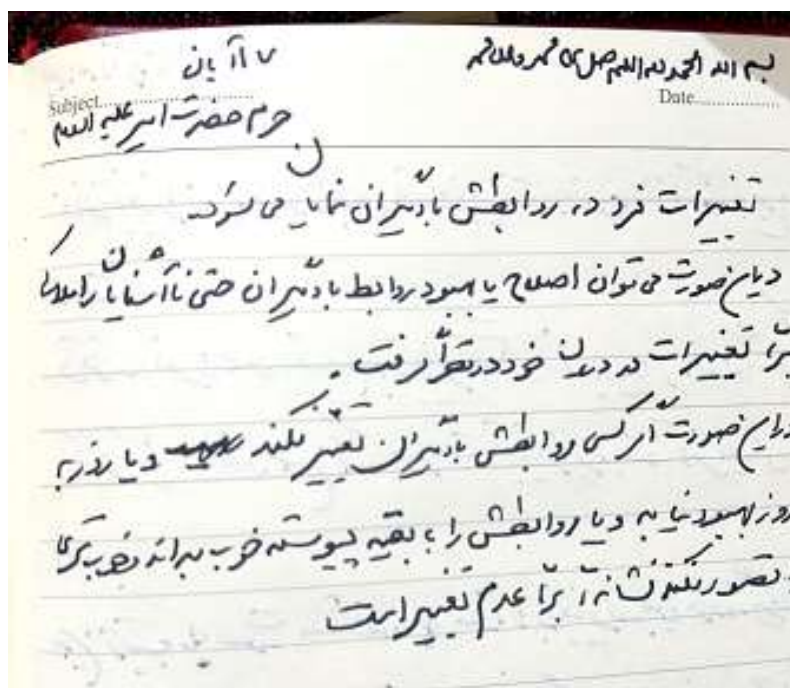 بسم الله الحمد لله اللهم صل علی محمد و آل محمد
۷ آبان
Subject
Date
حرم حضرت امیر علیه السلام
تغییرات فرد در روابطش با دیگران نمایان می شود.
در این صورت می توان اصلاح یا بهبود روابط با دیگران حتی ناآشنایان را ملاک
برای تغییرات در درون خود در نظر گرفت.
در این صورت اگر کسی روابطش با دیگران تغییر نکند و یا روز به
روز بهبود نیابد و یا روابطش را با بقیه پیوسته خوب بداند و خوب تری
تصور نکند نشانه ای برای عدم تغییر است